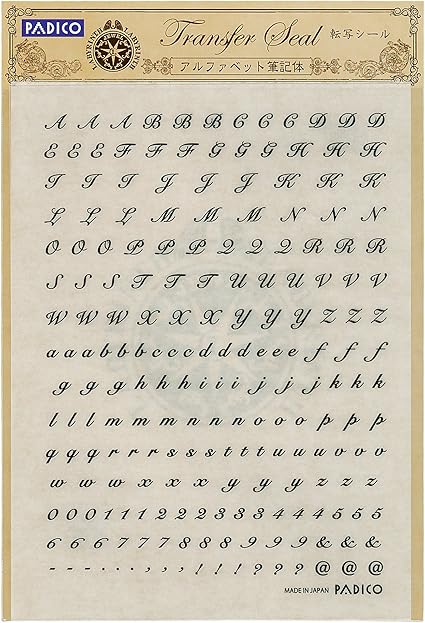 PADICO
LADYRINTH LABYRINTH
Transfer Seal 転写シール
アルファベット筆記体
A A A B B B C C C D D D
E E E F F F G G G H H H
I I I J J J K K K
L L L M M M N N N
O O O P P P Q Q Q R R R
S S S T T T U U U V V V
W W W X X X Y Y Y Z Z Z
a a a b b b c c c d d d e e e f f f
g g g h h h i i i j j j k k k
l l l m m m n n n o o o p p p
q q q r r r s s s t t t u u u v v v
w w w x x x y y y z z z
0 0 0 1 1 1 2 2 2 3 3 3 4 4 4 5 5 5
6 6 6 7 7 7 8 8 8 9 9 9 & & &
- - - . . . , , , ! ! ! ? ? ? @ @ @
MADE IN JAPAN PADICO